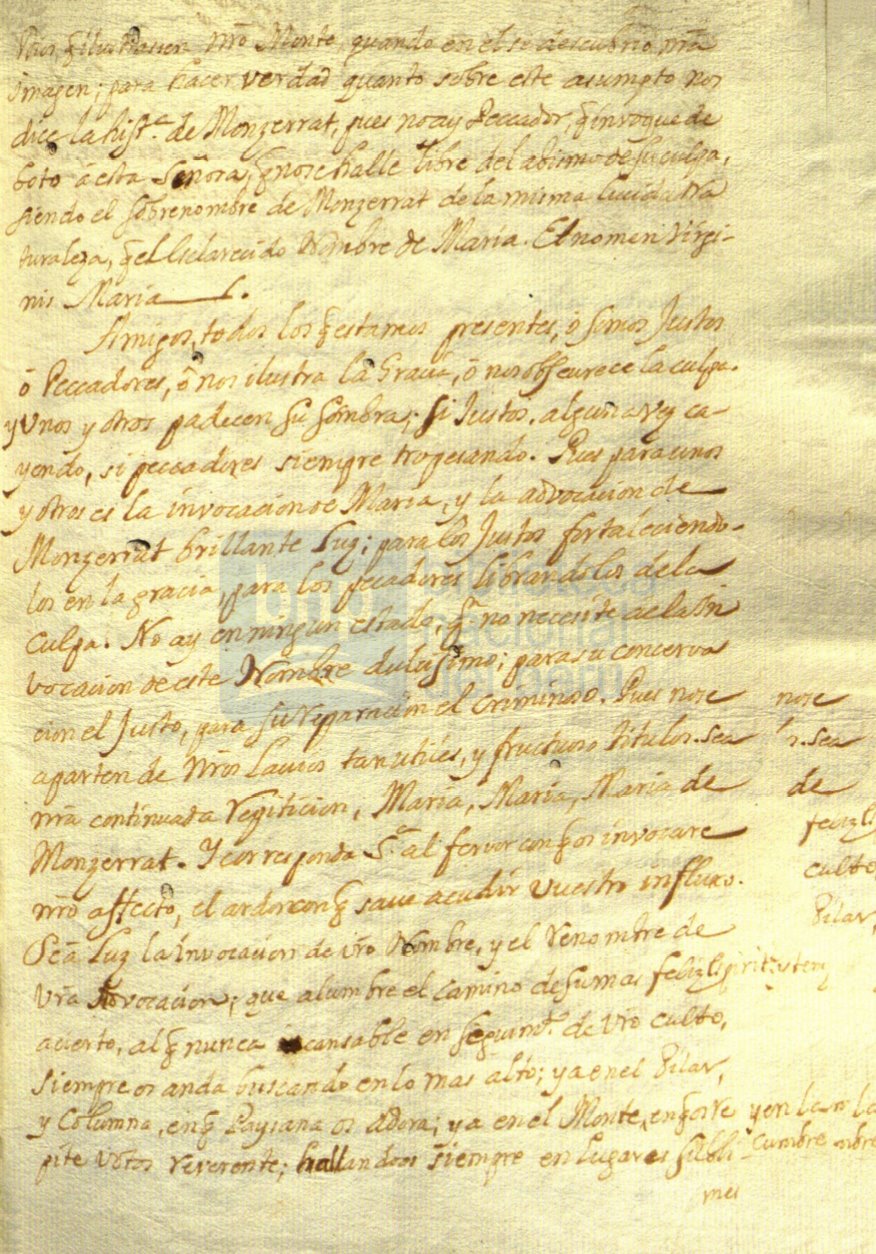 nrõ Monte, quando en el se descubrio nrã
Imagen; para hacer verdad quanto sobre este asumpto nos
dice la hist.ª de Monzerrat, pues no ay Peccador, q̃ invoque de
boto á esta Señora, q̃ no se halle libre del abismo de su culpa,
siendo el sobrenombre de Monzerrat de la misma lucida Na
turaleza, q̃ el Esclarecido Nombre de Maria. Et nomen Virgi-
nis Maria
Amigos, todos los q̃ estamos presentes, ó somos Justos
ó Peccadores, ó nos ilustra la Gracia, ó nos obscurece la culpa.
y Unos y otros padecen su sombra; si Justos, alguna vez ca-
yendo, si peccadores siempre tropesando. Pues para unos
y otros es la invocacion de Maria, y la advocacion de
Monzerrat brillante Luz; para los Justos fortaleciendo-
los en la gracia, para los pecadores librandolos de la
culpa. No ay en ningun estado, q̃ no necesite de la In
vocacion de este Nombre dulcisimo; para su conserva
cion el Justo, para su reparacion el Criminoso. Pues no se
aparten de nrõs Lavios tan utiles, y fructuoso titulos. sea
nrã continuada repiticion, Maria, Maria, Maria de
Monzerrat. Y corresponda S.ª al fervor con q̃ os invocare
nrõ affecto, el ardor con q̃ save acudir vuestro influxo.
Sea Luz la invocacion de vrõ Nombre, y el renombre de
vrã Advocacion; que alumbre el camino de su mas feliz
acierto, al q̃ nunca incansable en seguim.to de vrõ culto,
siempre os anda buscando en lo mas alto; ya en el Pilar,
y Columna, en q̃ Paysana os adora; ya en el Monte, en q̃ os re
pite votos reverente; hallandoos siempre en lugares subli
mes
no se
sea
de
feliz
culto,
Pilar,
y en la
cumbre